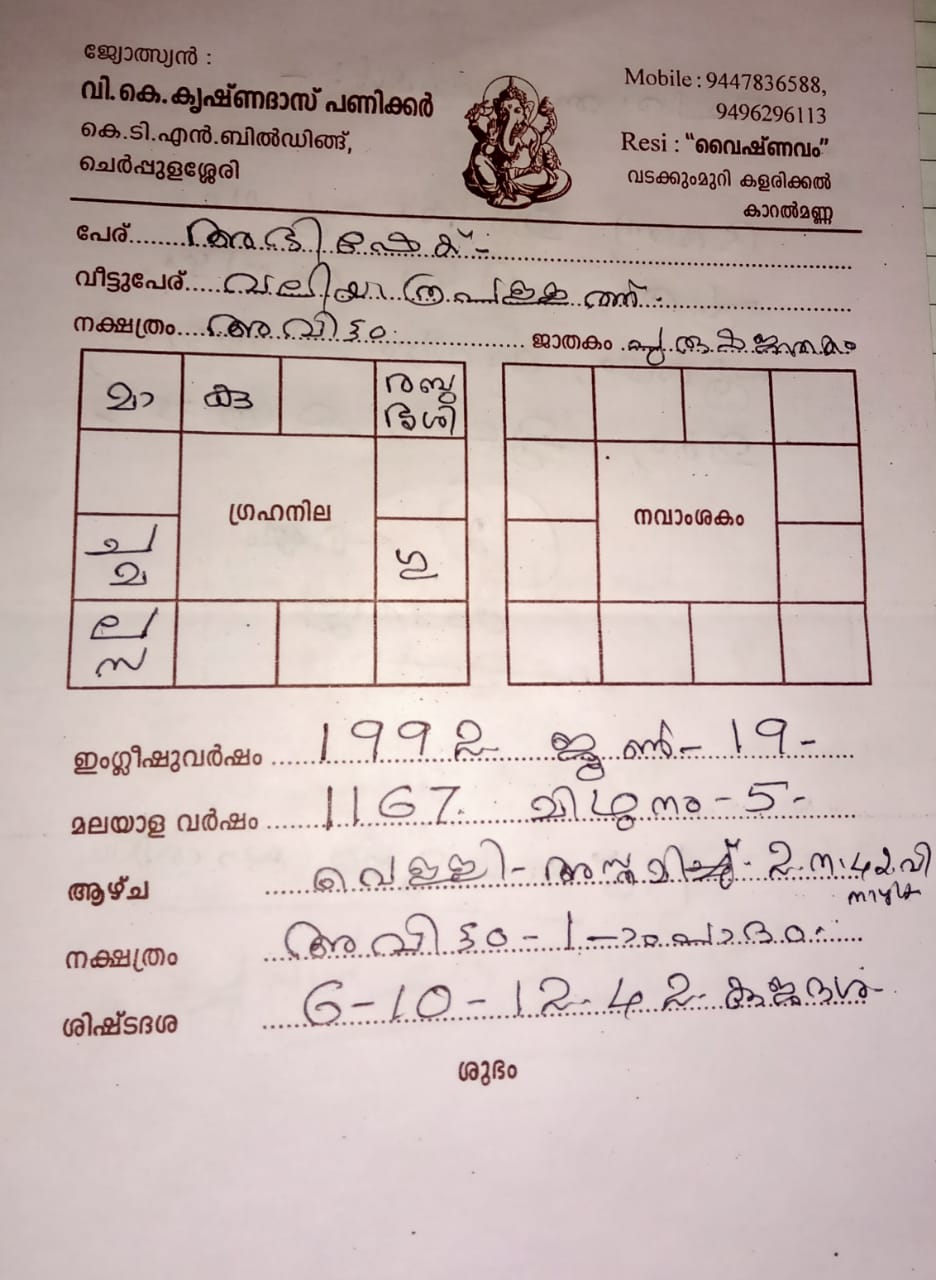 ജ്യോത്സ്യൻ :
വി.കെ.കൃഷ്ണദാസ് പണിക്കർ
കെ.ടി.എൻ.ബിൽഡിങ്ങ്,
ചെർപ്പുളശ്ശേരി
Mobile : 9447836588,
9496296113
Resi : “വൈഷ്ണവം”
വടക്കുംമുറി കളരിക്കൽ
കാറൽമണ്ണ
പേര് അഭിഷേക് -
വീട്ടുപേര്
നക്ഷത്രം അവിട്ടം ജാതകം പുരുഷജാതകം
മാ കു ര ബു
ശി
ഗ്രഹനില നവാംശകം
ച
മ
ഗു
ല
സ
ഇംഗ്ലീഷുവർഷം 1992 ജൂൺ - 19 -
മലയാള വർഷം 1167 മിഥുനം - 5 -
ആഴ്ച വെള്ളി - അസ്തമിച്ച് 2 നാ. 42 വി
നാഴിക
നക്ഷത്രം അവിട്ടം - 1 - ാം പാദം
ശിഷ്ടദശ 6 - 10 - 12 - 42 - കുജദശ -
ശുഭം